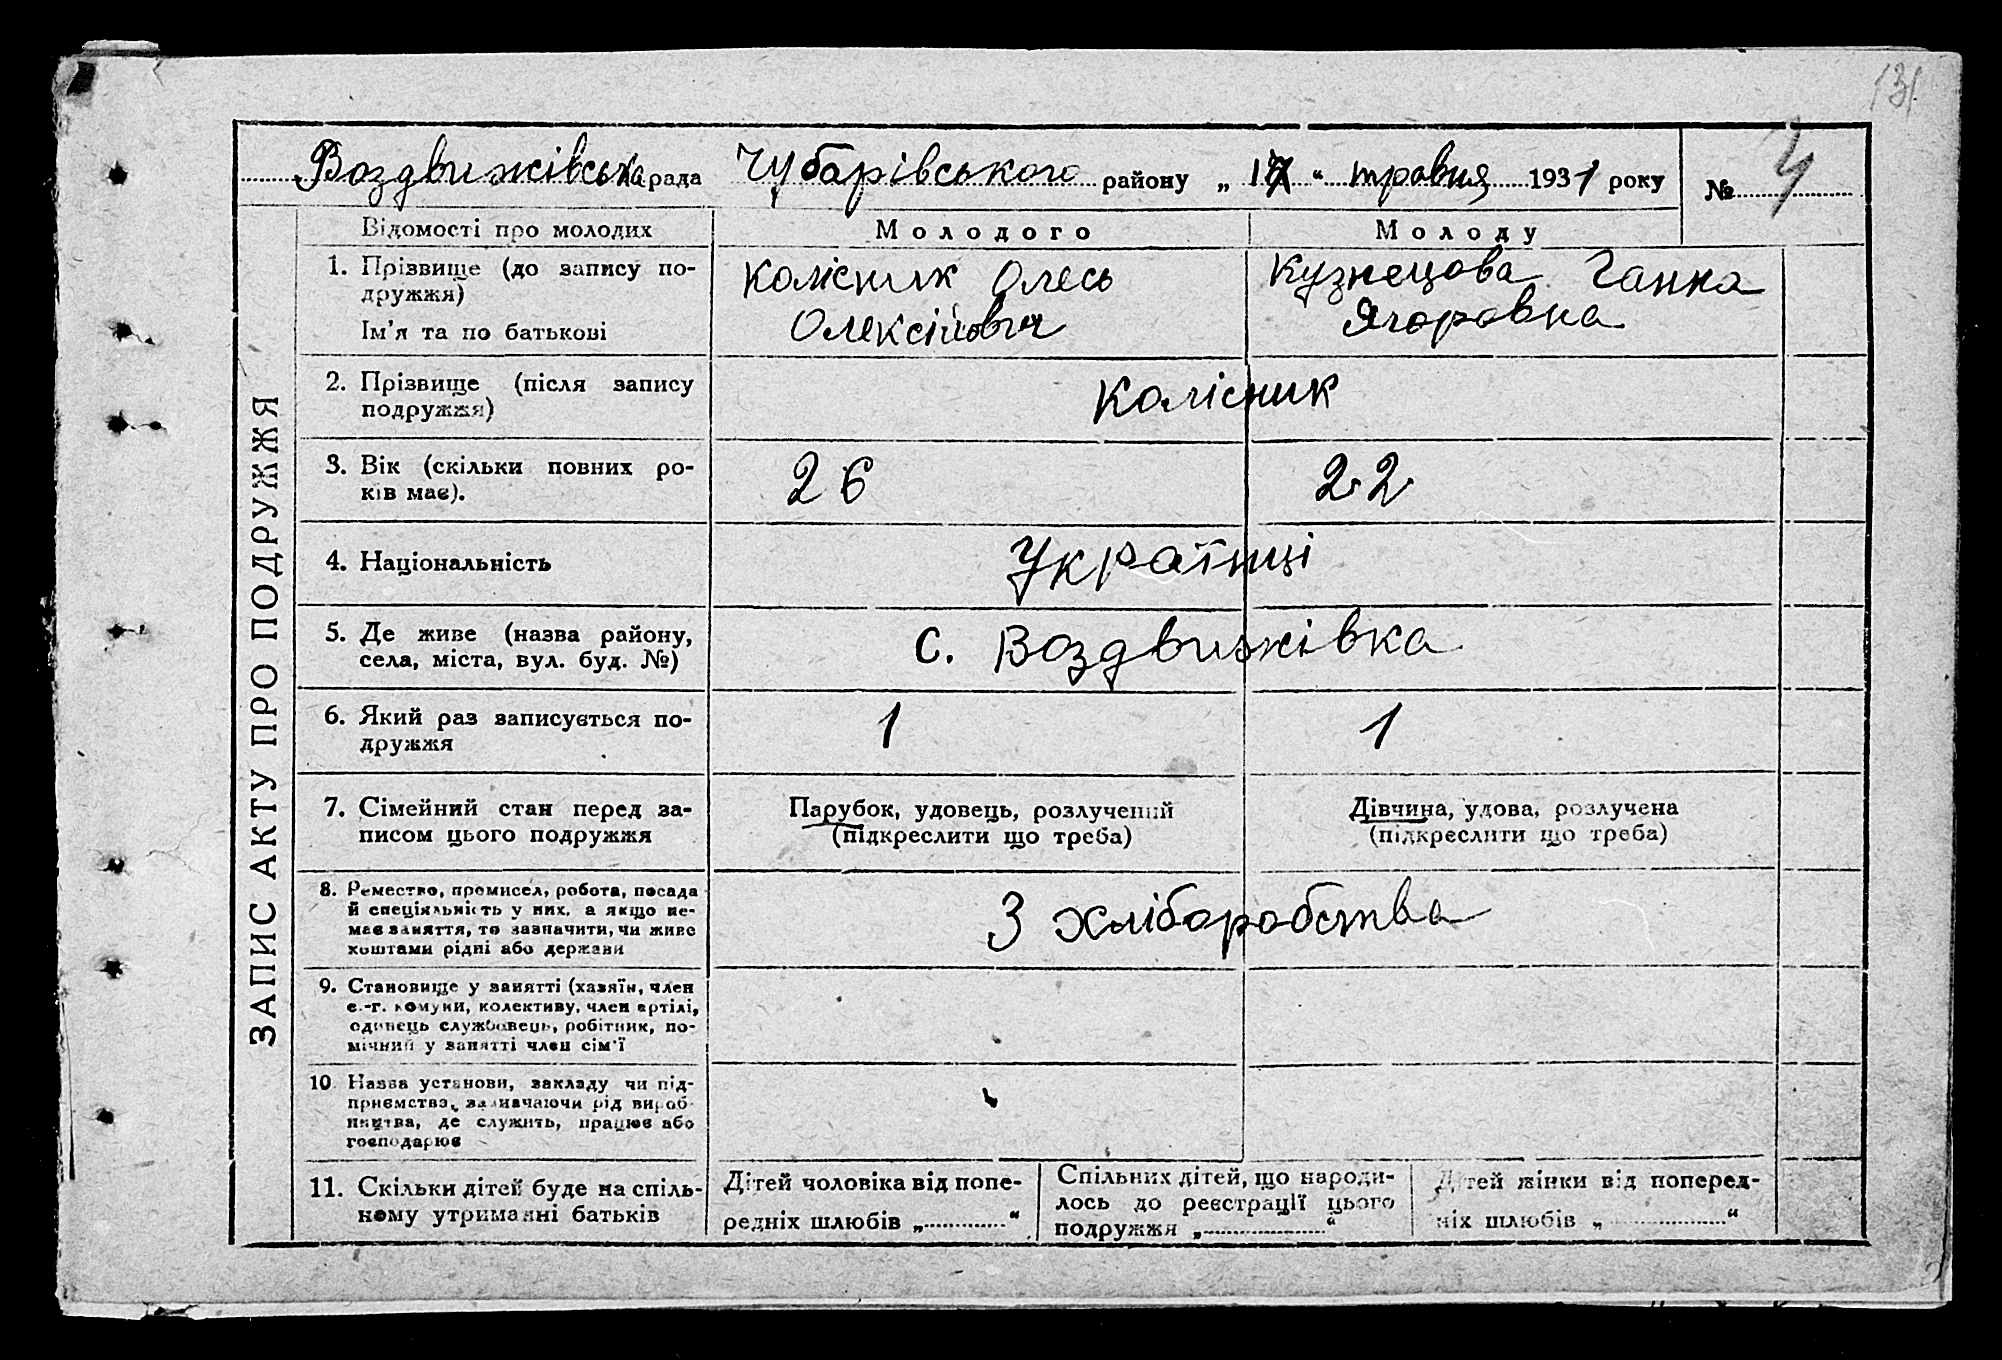 131
Воздвижівська рада Чубарівського району „ 17 “ травня 1931 року № 4
ЗАПИС АКТУ ПРО ПОДРУЖЖЯ
Відомості про молодих Молодого Молоду
1. Прізвище (до запису по-
дружжя)
Ім'я та по батькові
Колісник Олесь
Олексійович
Кузнецова Ганна
Ягоровна
2. Прізвище (після запису
подружжя)
Колісник
3. Вік (скільки повних ро-
ків має).
26 22
4. Національність
Українці
5. Де живе (назва району,
села, міста, вул. буд. №)
с. Воздвижівка
6. Який раз записується по-
дружжя
1 1
7. Сімейний стан перед за-
писом цього подружжя
Парубок, удовець, розлучений
(підкреслити що треба)
Дівчина, удова, розлучена
(підкреслити що треба)
8. Ремество, промисел, робота, посада
й спеціяльність у них, а якщо не-
має заняття, то зазначити, чи живе
коштами рідні або держави
З хліборобства
9. Становище у занятті (хазяїн, член
с.-г. комуни, колективу, член артілі,
одинець службовець, робітник, по-
мічний у занятті член сім'ї
10. Назва установи, закладу чи під-
приємства, зазначаючи рід вироб-
ництва, де служить, працює або
господарює
11. Скільки дітей буде на спіль-
ному утриманні батьків
Дітей чоловіка від попе-
редніх шлюбів „ “
Спільних дітей, що народи-
лось до реєстрації цього
подружжя „ “
Дітей жінки від поперед-
ніх шлюбів „ “